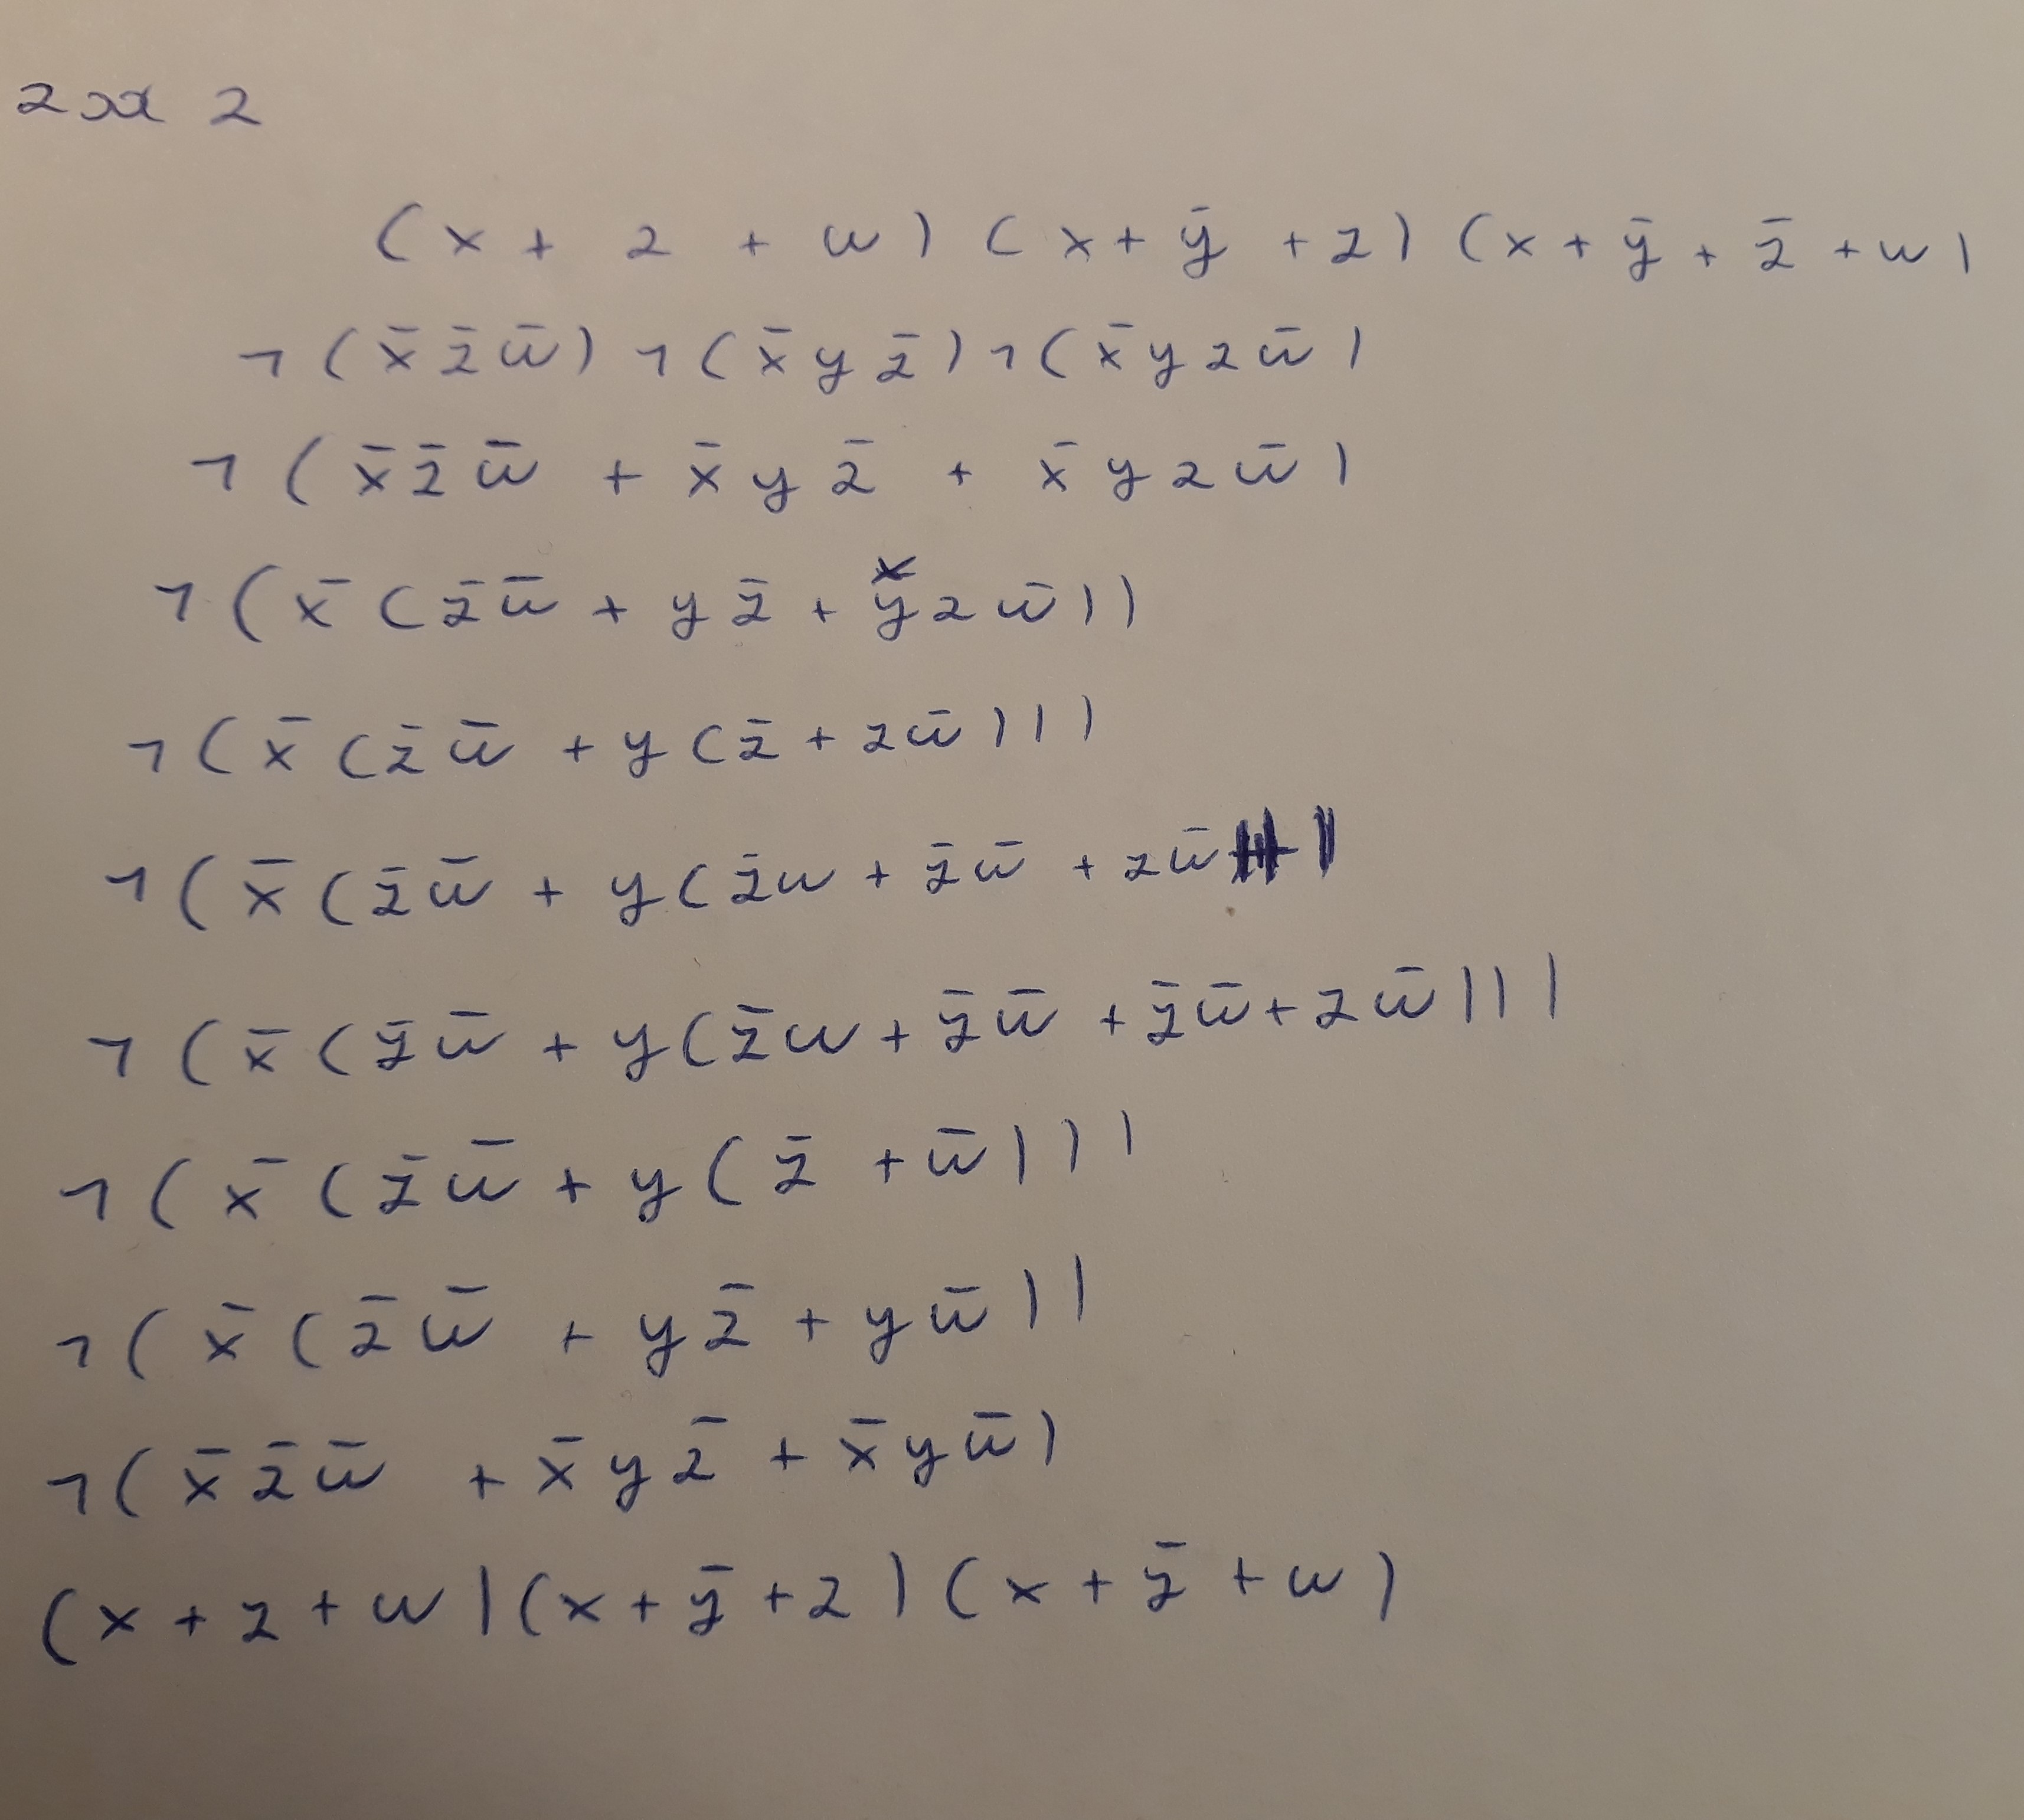 2xx 2
(x + z + w)(x + ȳ + z)(x + ȳ + z̄ + w)
¬(x̄ z̄ w̄) ¬(x̄ y z̄) ¬(x̄ y z w̄)
¬(x̄ z̄ w̄ + x̄ y z̄ + x̄ y z w̄)
¬(x̄(z̄ w̄ + y z̄ + y z w̄))
¬(x̄(z̄ w̄ + y(z̄ + z w̄)))
¬(x̄(z̄ w̄ + y(z̄ w + z̄ w̄ + z w̄)
¬(x̄(z̄ w̄ + y(z̄ w + z̄ w̄ + z̄ w̄ + z w̄)))
¬(x̄(z̄ w̄ + y(z̄ + w̄)))
¬(x̄(z̄ w̄ + y z̄ + y w̄))
¬(x̄ z̄ w̄ + x̄ y z̄ + x̄ y w̄)
(x + z + w)(x + ȳ + z)(x + ȳ + w)